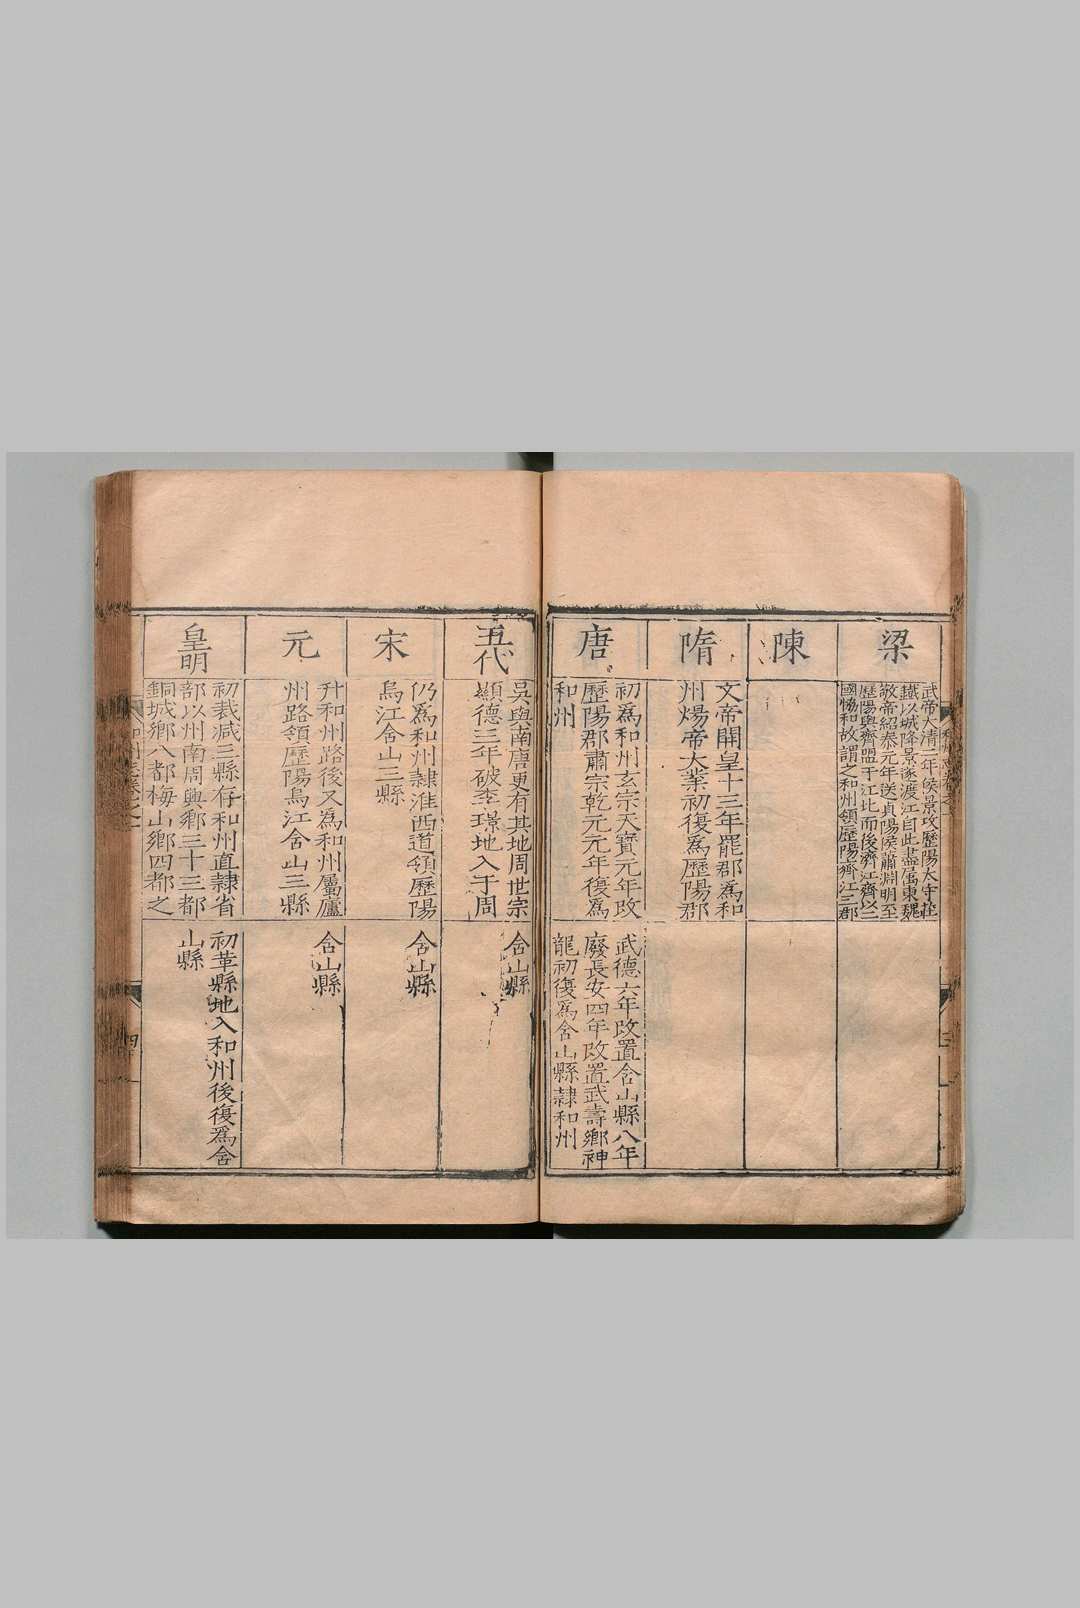 梁
武帝大清二年侯景攻歷陽太守莊
鐵以城降景遂渡江自此盡屬東魏
敬帝紹泰元年送貞陽侯蕭淵明至
歷陽與齊盟于江北而後濟江齊以三
國恊和故謂之和州領歷陽齊江三郡
陳
隋
文帝開皇十三年罷郡爲和
州煬帝大業初復爲歷陽郡
唐
初爲和州玄宗天寶元年改
歷陽郡肅宗乾元元年復爲
和州
武德六年改置含山縣八年
廢長安四年改置武壽鄉神
龍初復爲含山縣隸和州
五代
吳與南唐更有其地周世宗
顯德三年破李璟地入于周
含山縣
宋
仍爲和州隸淮西道領歷陽
烏江含山三縣
含山縣
元
升和州路後又爲和州屬廬
州路領歷陽烏江含山三縣
含山縣
皇明
初裁减三縣存和州直隸省
部以州南周興鄉三十三都
銅城鄉八都梅山鄉四都之
初革縣地入和州後復爲含
山縣
四